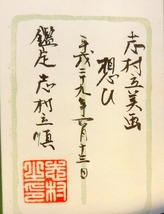 志村立美画
想ひ
平成二十九年六月十三日
鑑定 志村立慎